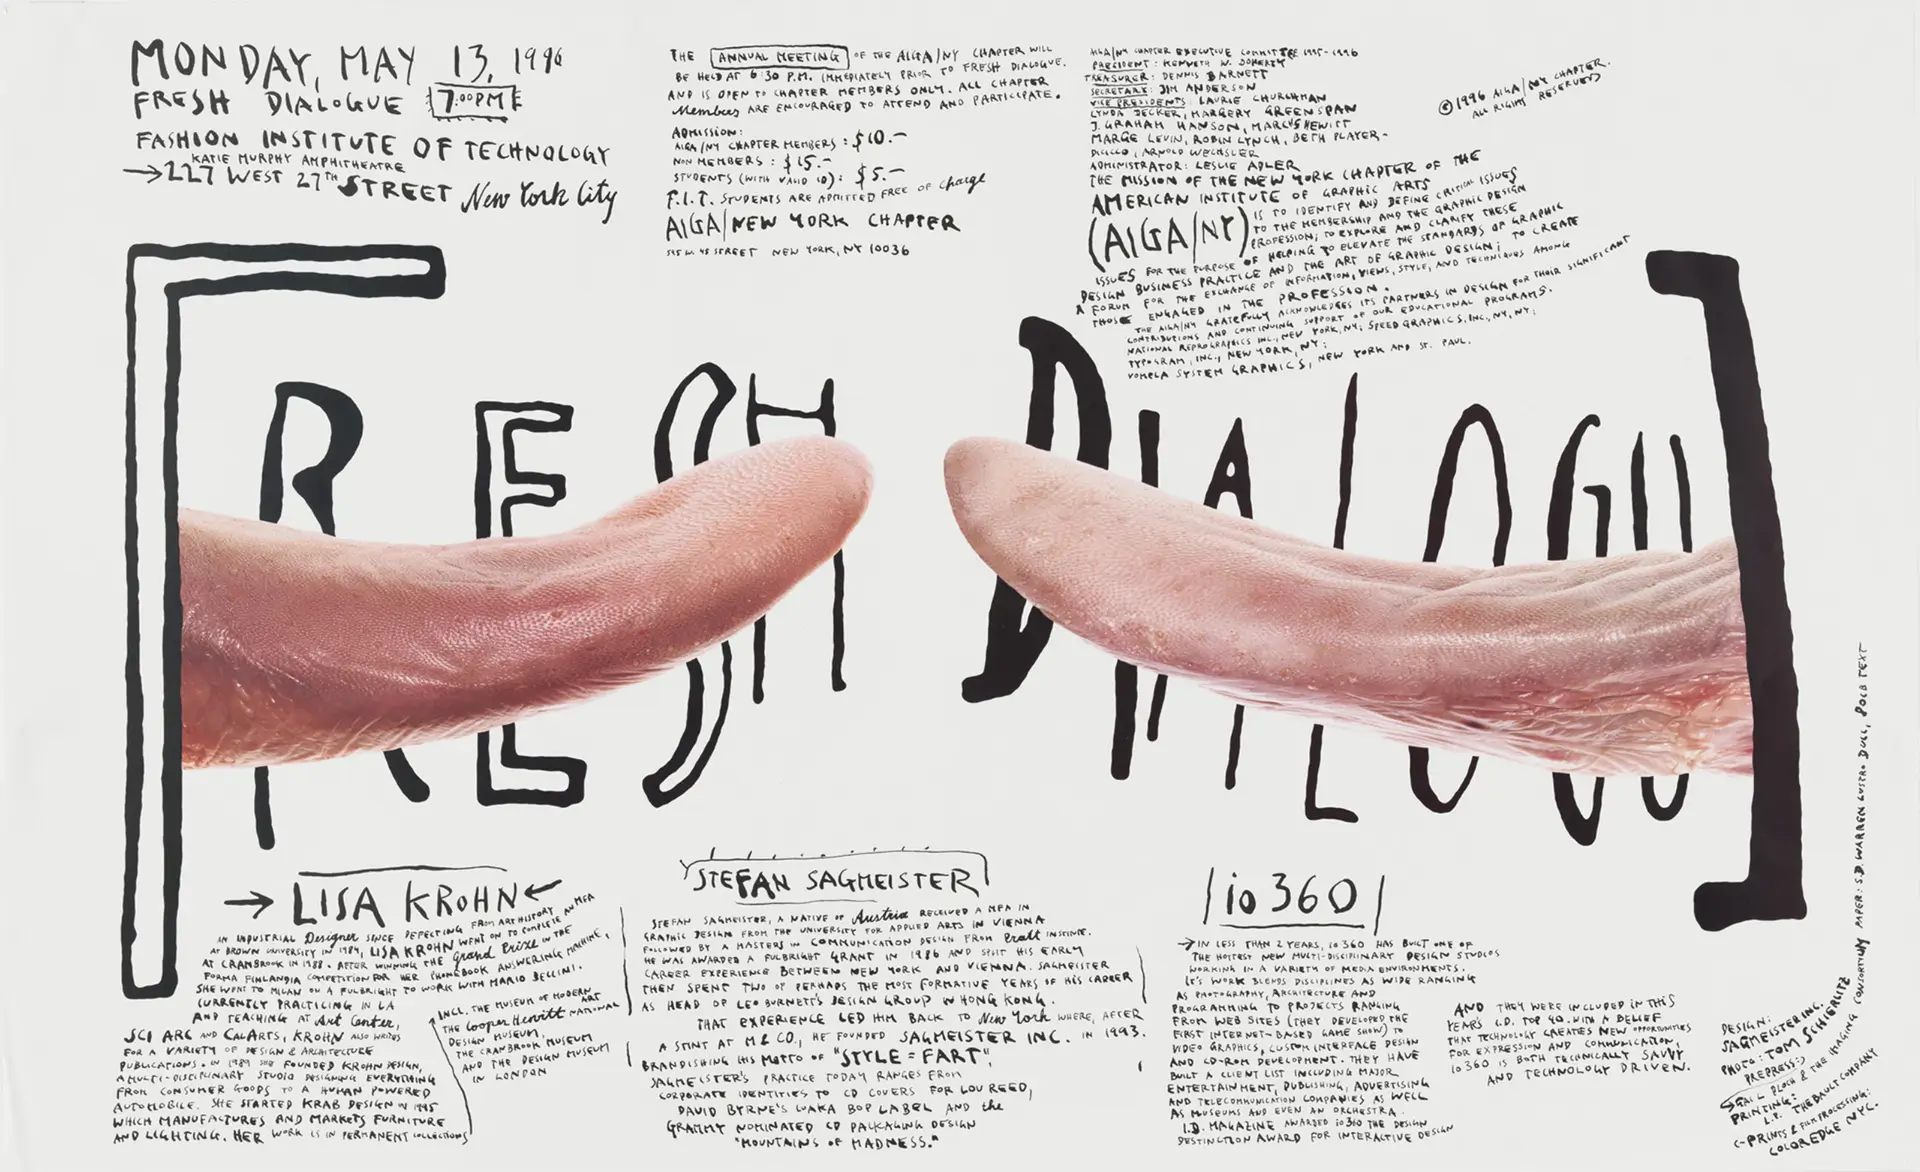 MONDAY, MAY 13, 1996
FRESH DIALOGUE 7:00PM
FASHION INSTITUTE OF TECHNOLOGY
KATIE MURPHY AMPHITHEATRE
→227 WEST 27TH STREET New York City
THE ANNUAL MEETING OF THE AIGA/NY CHAPTER WILL
BE HELD AT 6:30 P.M. IMMEDIATELY PRIOR TO FRESH DIALOGUE.
AND IS OPEN TO CHAPTER MEMBERS ONLY. ALL CHAPTER
Members ARE ENCOURAGED TO ATTEND AND PARTICIPATE.
ADMISSION:
AIGA/NY CHAPTER MEMBERS: $10.-
NON MEMBERS: $15.-
STUDENTS (WITH VALID ID): $5.-
F.I.T. STUDENTS ARE ADMITTED FREE OF Charge
AIGA/NEW YORK CHAPTER
NEW YORK, NY 10036
AIGA/NY CHAPTER EXECUTIVE COMMITTEE 1995-1996
PRESIDENT: KENNETH W. DOHERTY
TREASURER: DENNIS BARNETT
SECRETARY: JIM ANDERSON
VICE PRESIDENTS: LAURIE CHURCHMAN
LYNDA DECKER, MARGERY GREENSPAN
J. GRAHAM HANSON, MARCUS HEWITT
MARGE LEVIN, ROBIN LYNCH, BETH PLAYER-
DICICCO, ARNOLD WECHSLER
ADMINISTRATOR: LESLIE ADLER
THE MISSION OF THE NEW YORK CHAPTER OF THE
AMERICAN INSTITUTE OF GRAPHIC ARTS
(AIGA/NY) IS TO IDENTIFY AND DEFINE CRITICAL ISSUES
TO THE MEMBERSHIP AND THE GRAPHIC DESIGN
PROFESSION; TO EXPLORE AND CLARIFY THESE
ISSUES FOR THE PURPOSE OF HELPING TO ELEVATE THE STANDARDS OF GRAPHIC
DESIGN BUSINESS PRACTICE AND THE ART OF GRAPHIC DESIGN; TO CREATE
A FORUM FOR THE EXCHANGE OF INFORMATION, VIEWS, STYLE, AND TECHNIQUES AMONG
THOSE ENGAGED IN THE PROFESSION.
THE AIGA/NY GRATEFULLY ACKNOWLEDGES ITS PARTNERS IN DESIGN FOR THEIR SIGNIFICANT
CONTRIBUTIONS AND CONTINUING SUPPORT OF OUR EDUCATIONAL PROGRAMS.
NATIONAL REPROGRAPHICS INC., NEW YORK, NY; SPEED GRAPHICS, INC., NY, NY;
TYPOGRAM, INC., NEW YORK, NY;
VOMELA SYSTEM GRAPHICS, NEW YORK AND ST. PAUL.
©1996 AIGA/NY CHAPTER.
ALL RIGHTS RESERVED
FRESH DIALOGUE
→ LISA KROHN ←
AN INDUSTRIAL Designer SINCE DEFECTING FROM ART HISTORY
AT BROWN UNIVERSITY IN 1984, LISA KROHN WENT ON TO COMPLETE AN MFA
AT CRANBROOK IN 1988. AFTER WINNING THE Grand Prize IN THE
FORMA FINLANDIA COMPETITION FOR HER PHONEBOOK ANSWERING MACHINE,
SHE WENT TO MILAN ON A FULBRIGHT TO WORK WITH MARIO BELLINI.
CURRENTLY PRACTICING IN LA
AND TEACHING AT Art Center,
SCI ARC AND CALARTS, KROHN ALSO WRITES
FOR A VARIETY OF DESIGN & ARCHITECTURE
PUBLICATIONS. IN 1989 SHE FOUNDED KROHN DESIGN,
A MULTI-DISCIPLINARY STUDIO DESIGNING EVERYTHING
FROM CONSUMER GOODS TO A HUMAN POWERED
AUTOMOBILE. SHE STARTED KRAB DESIGN IN 1995
WHICH MANUFACTURES AND MARKETS FURNITURE
AND LIGHTING. HER WORK IS IN PERMANENT COLLECTIONS
INCL. THE MUSEUM OF MODERN ART
THE Cooper Hewitt NATIONAL
DESIGN MUSEUM,
THE CRANBROOK MUSEUM
AND THE DESIGN MUSEUM
IN LONDON
STEFAN SAGMEISTER
STEFAN SAGMEISTER, A NATIVE OF Austria RECEIVED A MFA IN
GRAPHIC DESIGN FROM THE UNIVERSITY FOR APPLIED ARTS IN VIENNA
FOLLOWED BY A MASTERS IN COMMUNICATION DESIGN FROM Pratt INSTITUTE.
HE WAS AWARDED A FULBRIGHT GRANT IN 1986 AND SPLIT HIS EARLY
CAREER EXPERIENCE BETWEEN NEW YORK AND VIENNA. SAGMEISTER
THEN SPENT TWO OF PERHAPS THE MOST FORMATIVE YEARS OF HIS CAREER
AS HEAD OF LEO BURNETT'S DESIGN GROUP IN HONG KONG.
THAT EXPERIENCE LED HIM BACK TO New York WHERE, AFTER
A STINT AT M & CO., HE FOUNDED SAGMEISTER INC. IN 1993.
BRANDISHING HIS MOTTO OF "STYLE = FART",
SAGMEISTER'S PRACTICE TODAY RANGES FROM
CORPORATE IDENTITIES TO CD COVERS FOR LOU REED,
DAVID BYRNE'S LUAKA BOP LABEL AND the
GRAMMY NOMINATED CD PACKAGING DESIGN
"MOUNTAINS OF MADNESS."
/io 360/
→IN LESS THAN 2 YEARS, io 360 HAS BUILT ONE OF
THE HOTTEST NEW MULTI-DISCIPLINARY DESIGN STUDIOS
WORKING IN A VARIETY OF MEDIA ENVIRONMENTS.
IT'S WORK BLENDS DISCIPLINES AS WIDE RANGING
AS PHOTOGRAPHY, ARCHITECTURE AND
PROGRAMMING TO PROJECTS RANGING
FROM WEB SITES (THEY DEVELOPED THE
FIRST INTERNET-BASED GAME SHOW) TO
VIDEO GRAPHICS, CUSTOM INTERFACE DESIGN
AND CD-ROM DEVELOPMENT. THEY HAVE
BUILT A CLIENT LIST INCLUDING MAJOR
ENTERTAINMENT, PUBLISHING, ADVERTISING
AND TELECOMMUNICATION COMPANIES AS WELL
AS MUSEUMS AND EVEN AN ORCHESTRA.
I.D. MAGAZINE AWARDED io 360 THE DESIGN
DISTINCTION AWARD FOR INTERACTIVE DESIGN
AND THEY WERE INCLUDED IN THIS
YEAR'S I.D. TOP 40. WITH A BELIEF
THAT TECHNOLOGY CREATES NEW OPPORTUNITIES
FOR EXPRESSION AND COMMUNICATION,
io 360 IS BOTH TECHNICALLY SAVVY
AND TECHNOLOGY DRIVEN.
DESIGN:
SAGMEISTER INC.
PHOTO: TOM SCHIERLITZ
PREPRESS:
GALL BLOCK & THE IMAGING CONSORTIUM
PRINTING:
L.P. THEBAULT COMPANY
C-PRINTS & FILM PROCESSING:
COLOREDGE NYC.
PAPER: S.D. WARREN LUSTRO DULL, 80LB TEXT